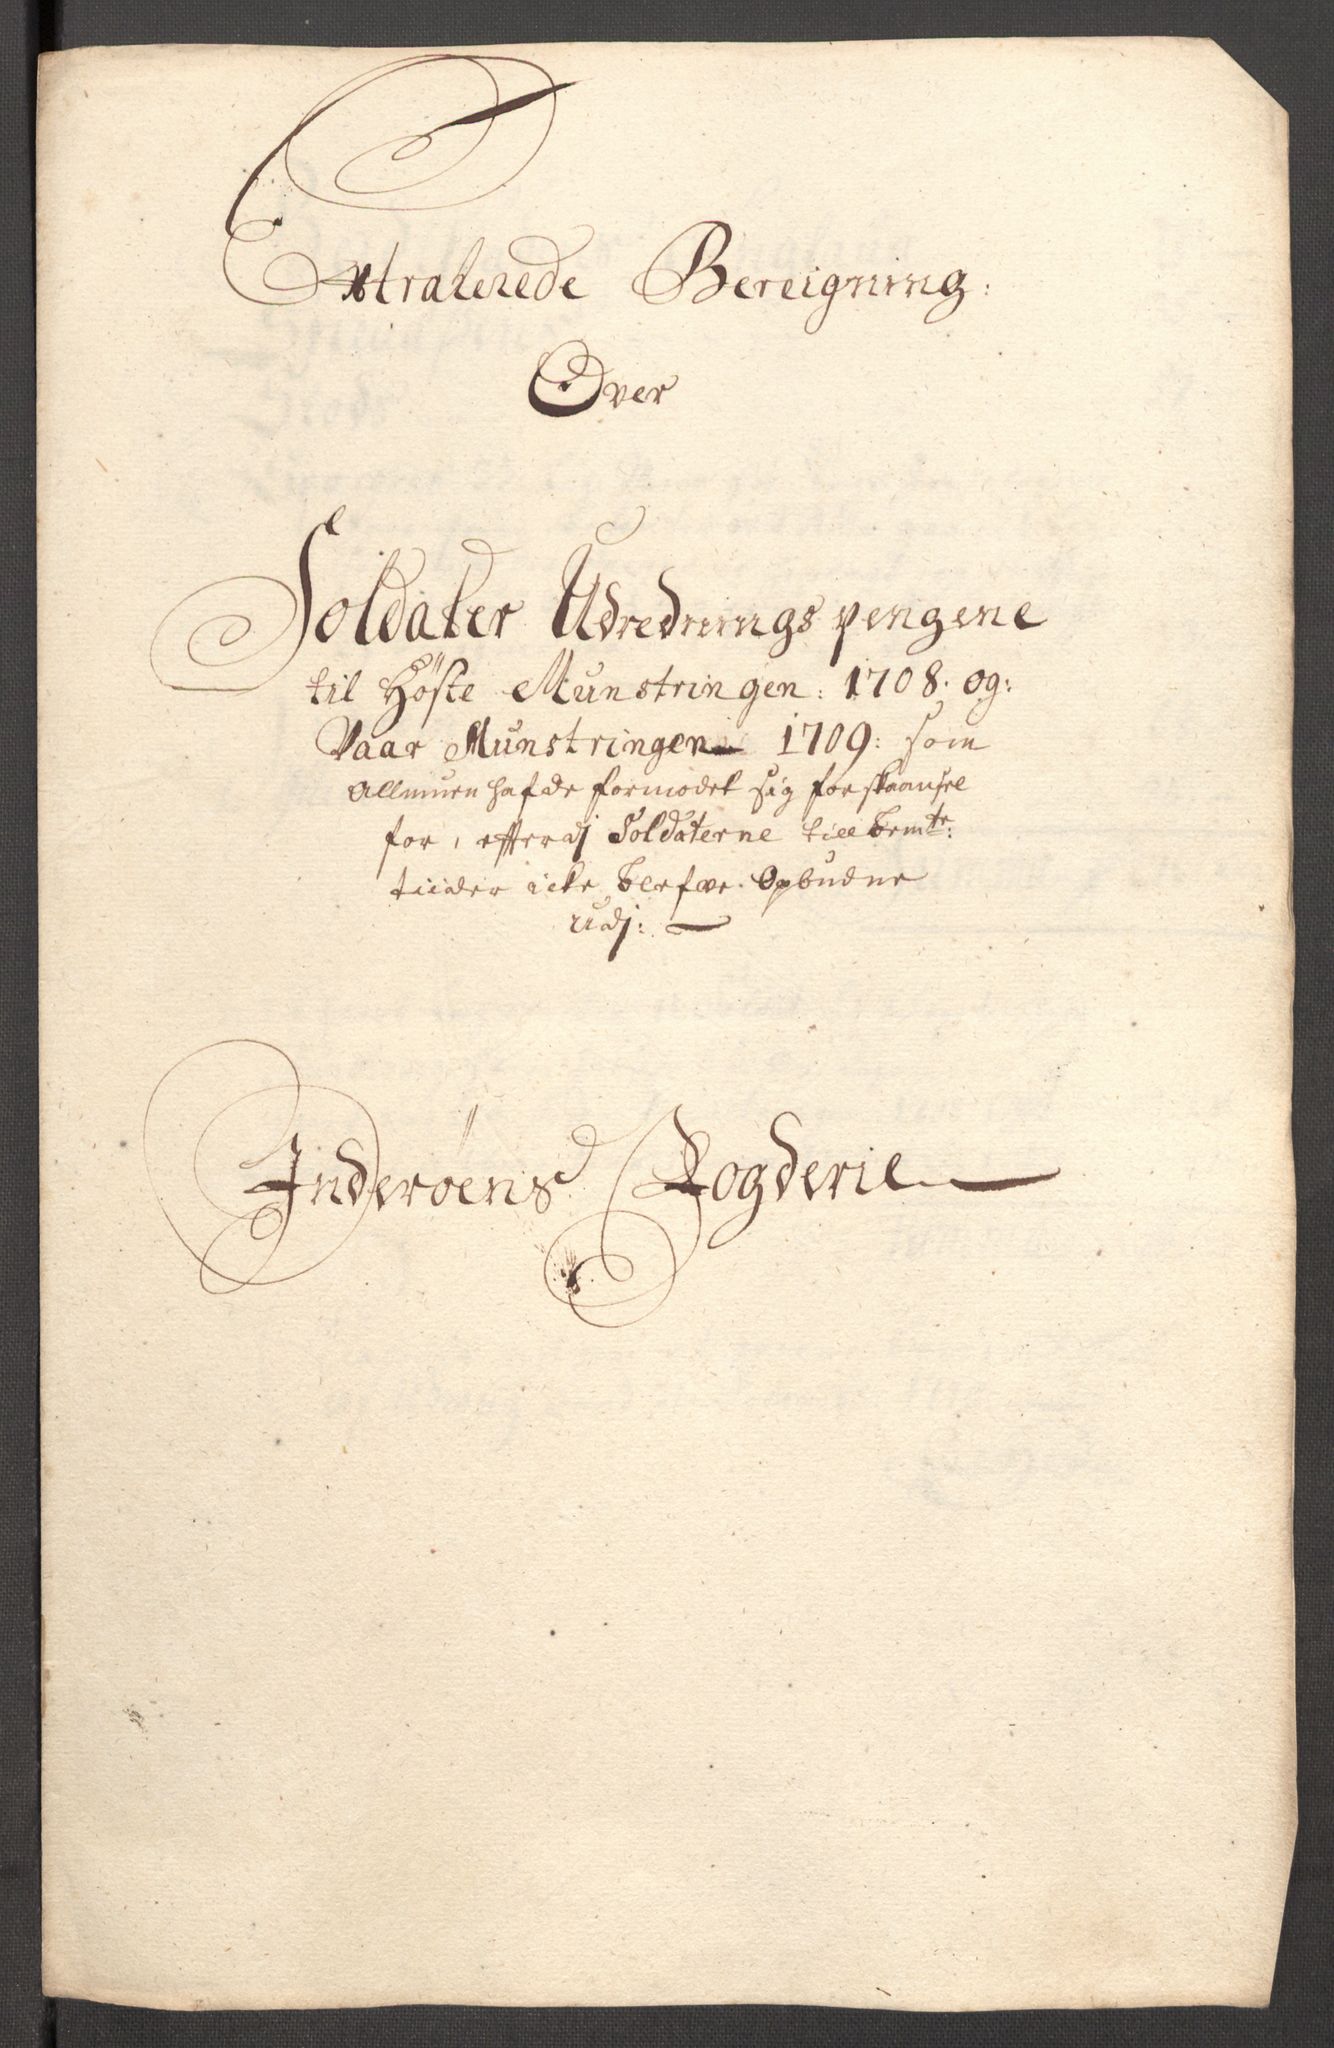 Extraherede Bereigning:
Over
Soldater Udrednings pengene
til Høste Munstringen: 1708. og:
Vaar Munstringen 1709: som
Allmuen hafde formodet sig forskaansel
for, efterdj Soldaterne till bemte:
tiider icke blefve Opbudne
udj:
Inderøens Fogderie